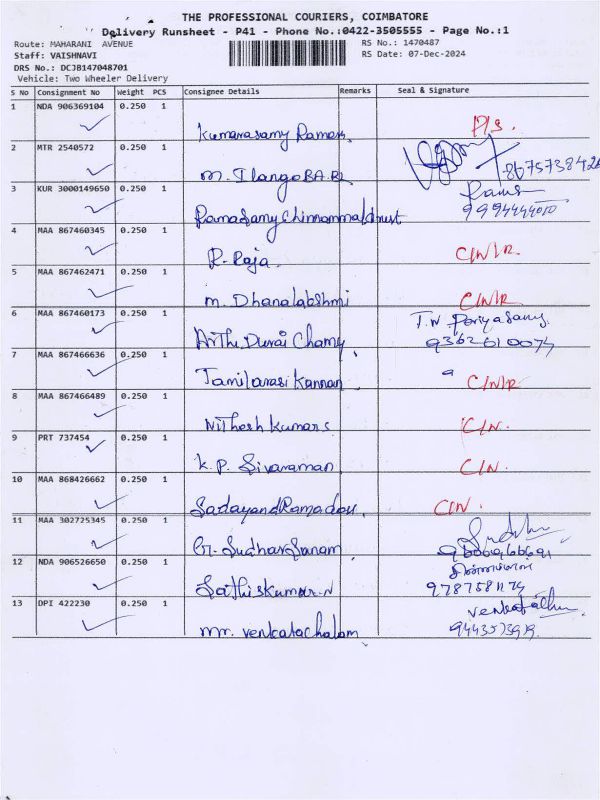 THE PROFESSIONAL COURIERS, COIMBATORE
Delivery Runsheet - P41 - Phone No.:0422-3505555 - Page No.:1
Route: MAHARANI AVENUE RS No.: 1470487
Staff: VAISHNAVI RS Date: 07-Dec-2024
DRS No.: DCJB147048701
Vehicle: Two Wheeler Delivery
S No Consignment No Weight PCS Consignee Details Remarks Seal & Signature
1 NDA 906369104 0.250 1
Kumarasamy P/S.
2 MTR 2540572 0.250 1
M. Ilango BA.BL
3 KUR 3000149650 0.250 1
Ramasamy Chinnammal trust 9994444010
4 MAA 867460345 0.250 1
P. Raja. C/N/R.
5 MAA 867462471 0.250 1
M. Dhanalabshmi C/N/R
6 MAA 867460173 0.250 1 T.N. Poriyasamy
Arthi Durai Chamy 9362610074
7 MAA 867466636 0.250 1
Tamilarasi Kannan C/N/R
8 MAA 867466489 0.250 1
Nithesh Kumar s C/N.
9 PRT 737454 0.250 1
K. P. Sivaraman C/N.
10 MAA 868426662 0.250 1
C/N.
11 MAA 302725345 0.250 1
Gr. Sudharsanam
12 NDA 906526650 0.250 1
Sathiskumar.N
13 DPI 422230 0.250 1
Mr. Venkatachalam